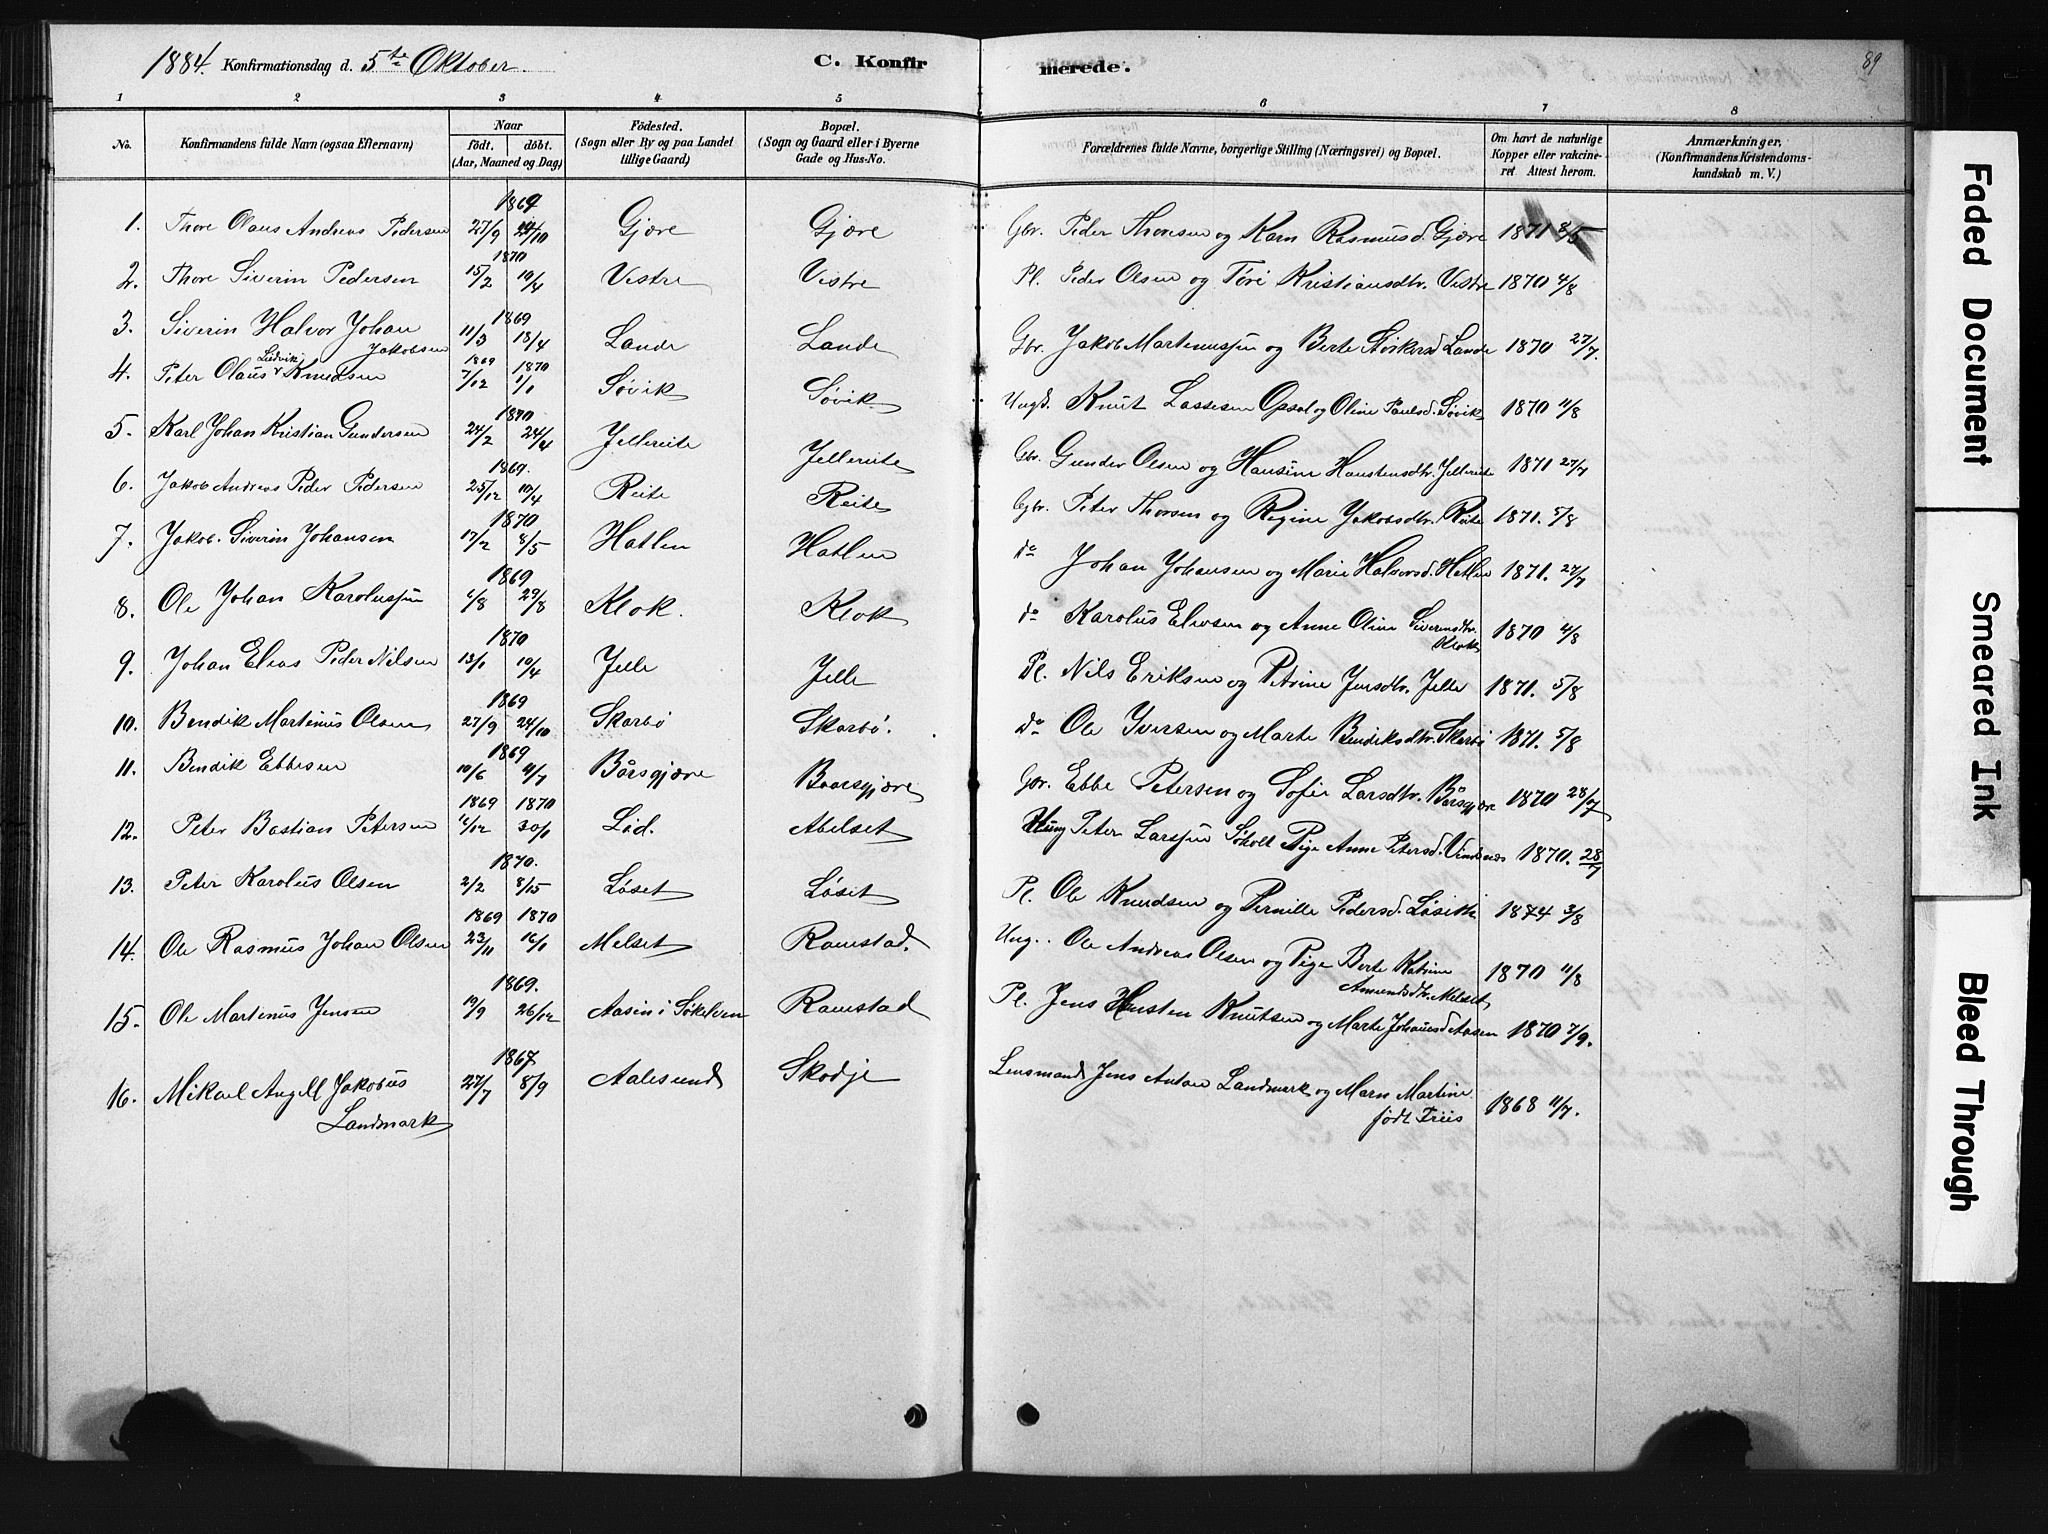 1884. Konfirmationsdag d. 5te Oktober. C. Konfirmerede. 89
1 2 3 4 5 6 7 8
No. Konfirmandens fulde Navn (ogsaa Efternavn) Naar født. døbt. (Aar, Maaned og Dag) Fødested. (Sogn eller By og paa Landet tillige Gaard) Bopæl. (Sogn og Gaard eller i Byerne Gade og Hus-No. Forældrenes fulde Navne, borgerlige Stilling (Næringsvei) og Bopæl. Om havt de naturlige Kopper eller vakcineret Attest herom. Anmærkninger, (Konfirmandens Kristendomskundskab m. V.)
1869
1. Thore Olaus Andreas Pedersen 27/9 24/10 Gjære Gjære Gbr. Peder Thoresen og Karn Rasmusd. Gjære 1871 8/5
1870
2. Thore Siverin Pedersen 15/2 19/4 Vistre Vistre Pl. Peder Olsen og Töri Kristiansdtr. Vistre 1870 4/8
1869
3. Siverin Halvor Johan Jakobsen 11/3 18/4 Lande Lande Gbr. Jakob Martinussen og Berte Lande 1870 27/7.
1869 1870
4. Peter Olaus Ludvik Knudsen 7/12 1/1 Søvik Søvik Ungk. Knut Lassesen Opsal og Oline Paulsd. Søvik 1870 11/8
1870
5. Karl Johan Kristian Gundersen 24/2 24/4 Jellereite Jellereite Gbr. Gunder Olsen og Hansine Haustensdtr. Jellereite 1871 27/7
1869.
6. Jakob Andreas Peder Pedersen 25/12 10/4 Reite Reite Gbr. Peter Thorsen og Regine Jakobsdtr. Reite 1871. 5/8
1870
7. Jakob Siverin Johansen 17/2 8/5 Hatlen Hatlen do Johan Johansen og Marie Halvorsd. Hatlen 1871. 27/7
1869
8. Ole Johan Karolussen 6/8 29/8 Klok. Klok do Karolus Eliesen og Anne Oline Siverinsdtr. Klok 1870 4/8
1870
9. Johan Elias Peder Nilsen 13/1 10/4 Jelle Jelle Pl. Nils Eriksen og Petrine Jensdtr. Jelle 1871. 5/8
1869
10. Bendik Martinus Olsen 27/9 24/10 Skarbø Skarbø. do Ole Iversen og Marte Bendiksdtr. Skarbø 1871. 5/8
1869
11. Bendik Ebbesen 10/6 11/7 Bårsgjære Baarsgjære Gbr. Ebbe Petersen og Sofie Larsdtr. Bårsgjære 1870 28/7
1869 1870
12. Peter Bastian Petersen 16/12 30/1 Lød. Abelset Ung Peter Larssen Søholt Pige Anne Petersd. 1870. 28/7
1870.
13. Peter Karolus Olsen 2/2 8/15 Løset Løsit Pl. Ole Knudsen og Pernille Pedersd. Løsith 1874 3/8
1869 1870
14. Ole Rasmus Johan Olsen 23/11 16/1 Melset Ramstad. Ung. Ole Andreas Olsen og Pige Berte Katrine Amundsdtr. Melset 1870 11/8
1869.
15. Ole Martinus Jensen 19/9 26/12 Aasen i Søkelven Ramstad Pl. Jens Hausten Knutsen og Marte Johannesd Aasen 1870 7/9.
1867
16. Mikael Angell Jakobus Landmark 27/7 8/9 Aalesund Skodje Lensmand Jens Anton Landmark og Marn Martine født Friis 1868 11/7.
Faded Document
Smeared Ink
Bleed Through